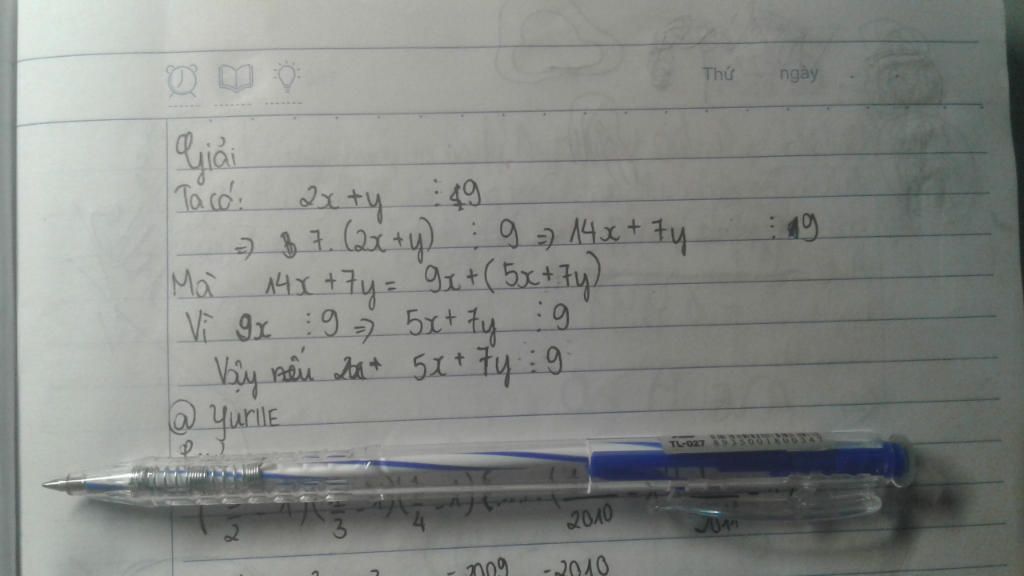 Thứ ngày
Giải
Ta có: 2x+y ⋮ 9
=> 7. (2x+y) ⋮ 9 => 14x + 7y ⋮ 9
Mà 14x + 7y = 9x + (5x+7y)
Vì 9x ⋮ 9 => 5x + 7y ⋮ 9
Vậy 5x + 7y ⋮ 9
@ YurIIE
TL-027
2 3 4 2010 2011
2009 -2010